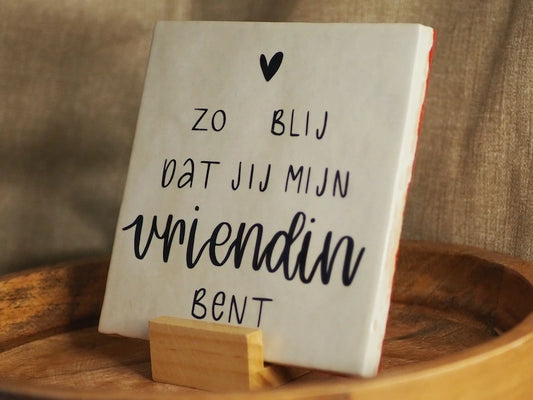 ZO BLIJ
DAT JIJ MIJN
vriendin
BENT